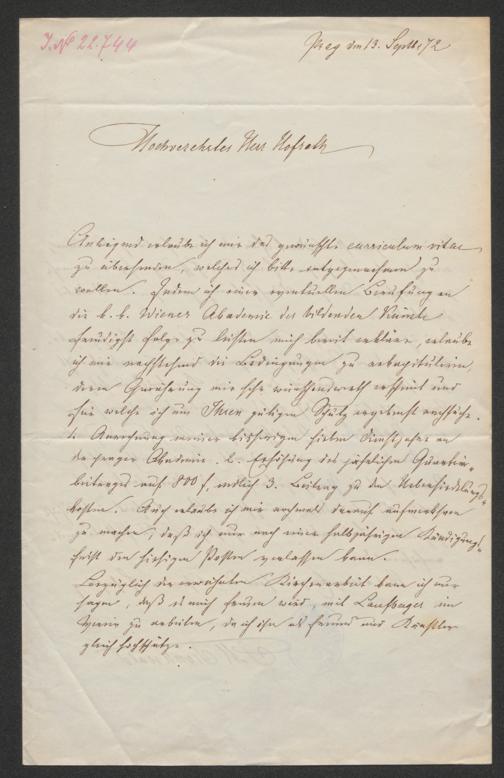 I. № 22.744
Prag den 13. Septbr. 72
Hochverehrter Herr Hofrath
Anliegend erlaube ich mir das gewünschte curriculum vitae
zu übersenden, welches ich bitte entgegennehmen zu
wollen. Indem ich einer eventuellen Berufung an
die k. k. Wiener Akademie der bildenden Künste
freudigst Folge zu leisten mich bereit erkläre, erlaube
ich mir nachstehend die Bedingungen zu rekapitulieren,
deren Gewährung mir sehr wünschenswerth erscheint und
für welche ich um Ihren gütigen Schutz ergebenst nachsuche.
1. Anrechnung meiner bisherigen sieben Dienstjahre an
der Prager Akademie. 2. Erhöhung des jährlichen Quartier-
beitrages auf 800 f, endlich 3. Beitrag zu den Uebersiedlungs-
kosten. Auch erlaube ich mir nochmals darauf aufmerksam
zu machen, daß ich nur nach einer halbjährigen Kündigungs-
frist den hiesigen Posten verlassen kann.
Bezüglich der erwähnten Kirchenarbeit kann ich nur
sagen, daß es mich freuen wird, mit Laufberger im
Verein zu arbeiten, da ich ihn als Freund und Künstler
gleich hochschätze.